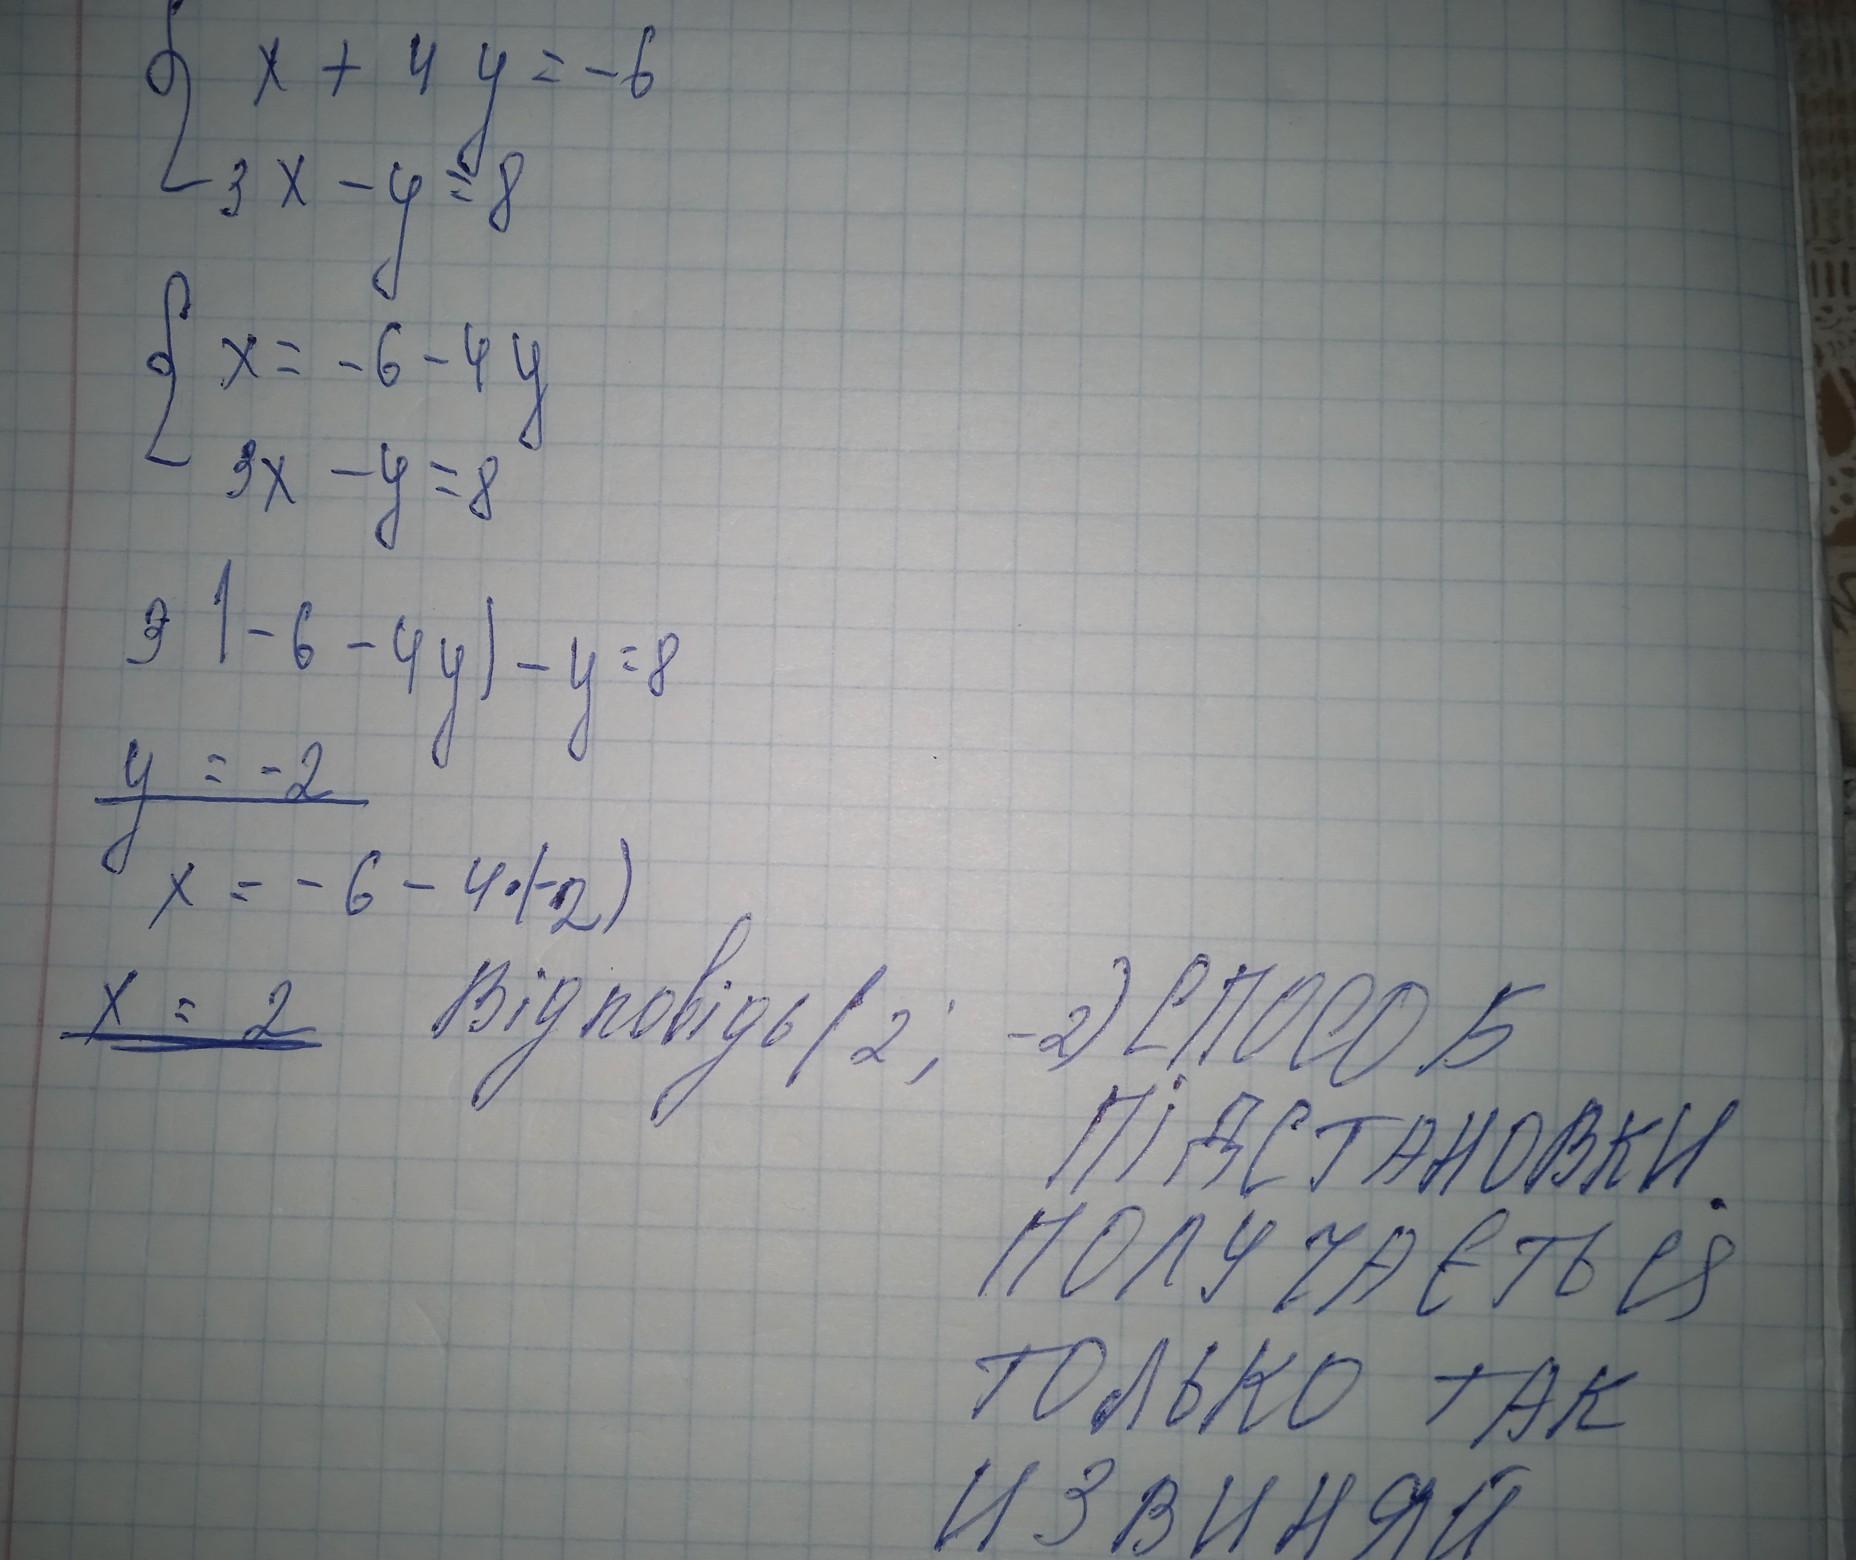 x + 4y = -6
3x - y = 8
x = -6 - 4y
3x - y = 8
3(-6 - 4y) - y = 8
y = -2
x = -6 - 4·(-2)
x = 2 Відповідь (2; -2) СПОСОБ
ПІДСТАНОВКИ.
ПОЛУЧАЕТЬСЯ
ТОЛЬКО ТАК
ИЗВИНЯЙ